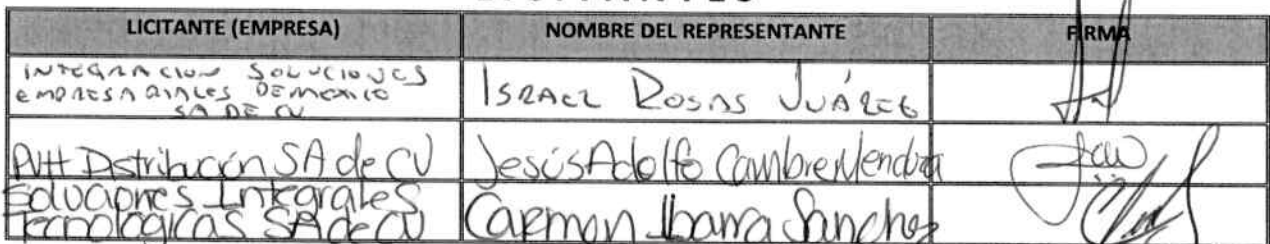 LICITANTE (EMPRESA) NOMBRE DEL REPRESENTANTE FIRMA
INTEGRACION SOLUCIONES
EMPRESARIALES DE MEXICO
SA DE CV
ISRAEL ROSAS JUÁREZ
Distribución SA de CV
Jesús Adolfo
Soluciones Integrales
Tecnológicas SA de CV
Carmen Ibarra Sanchez